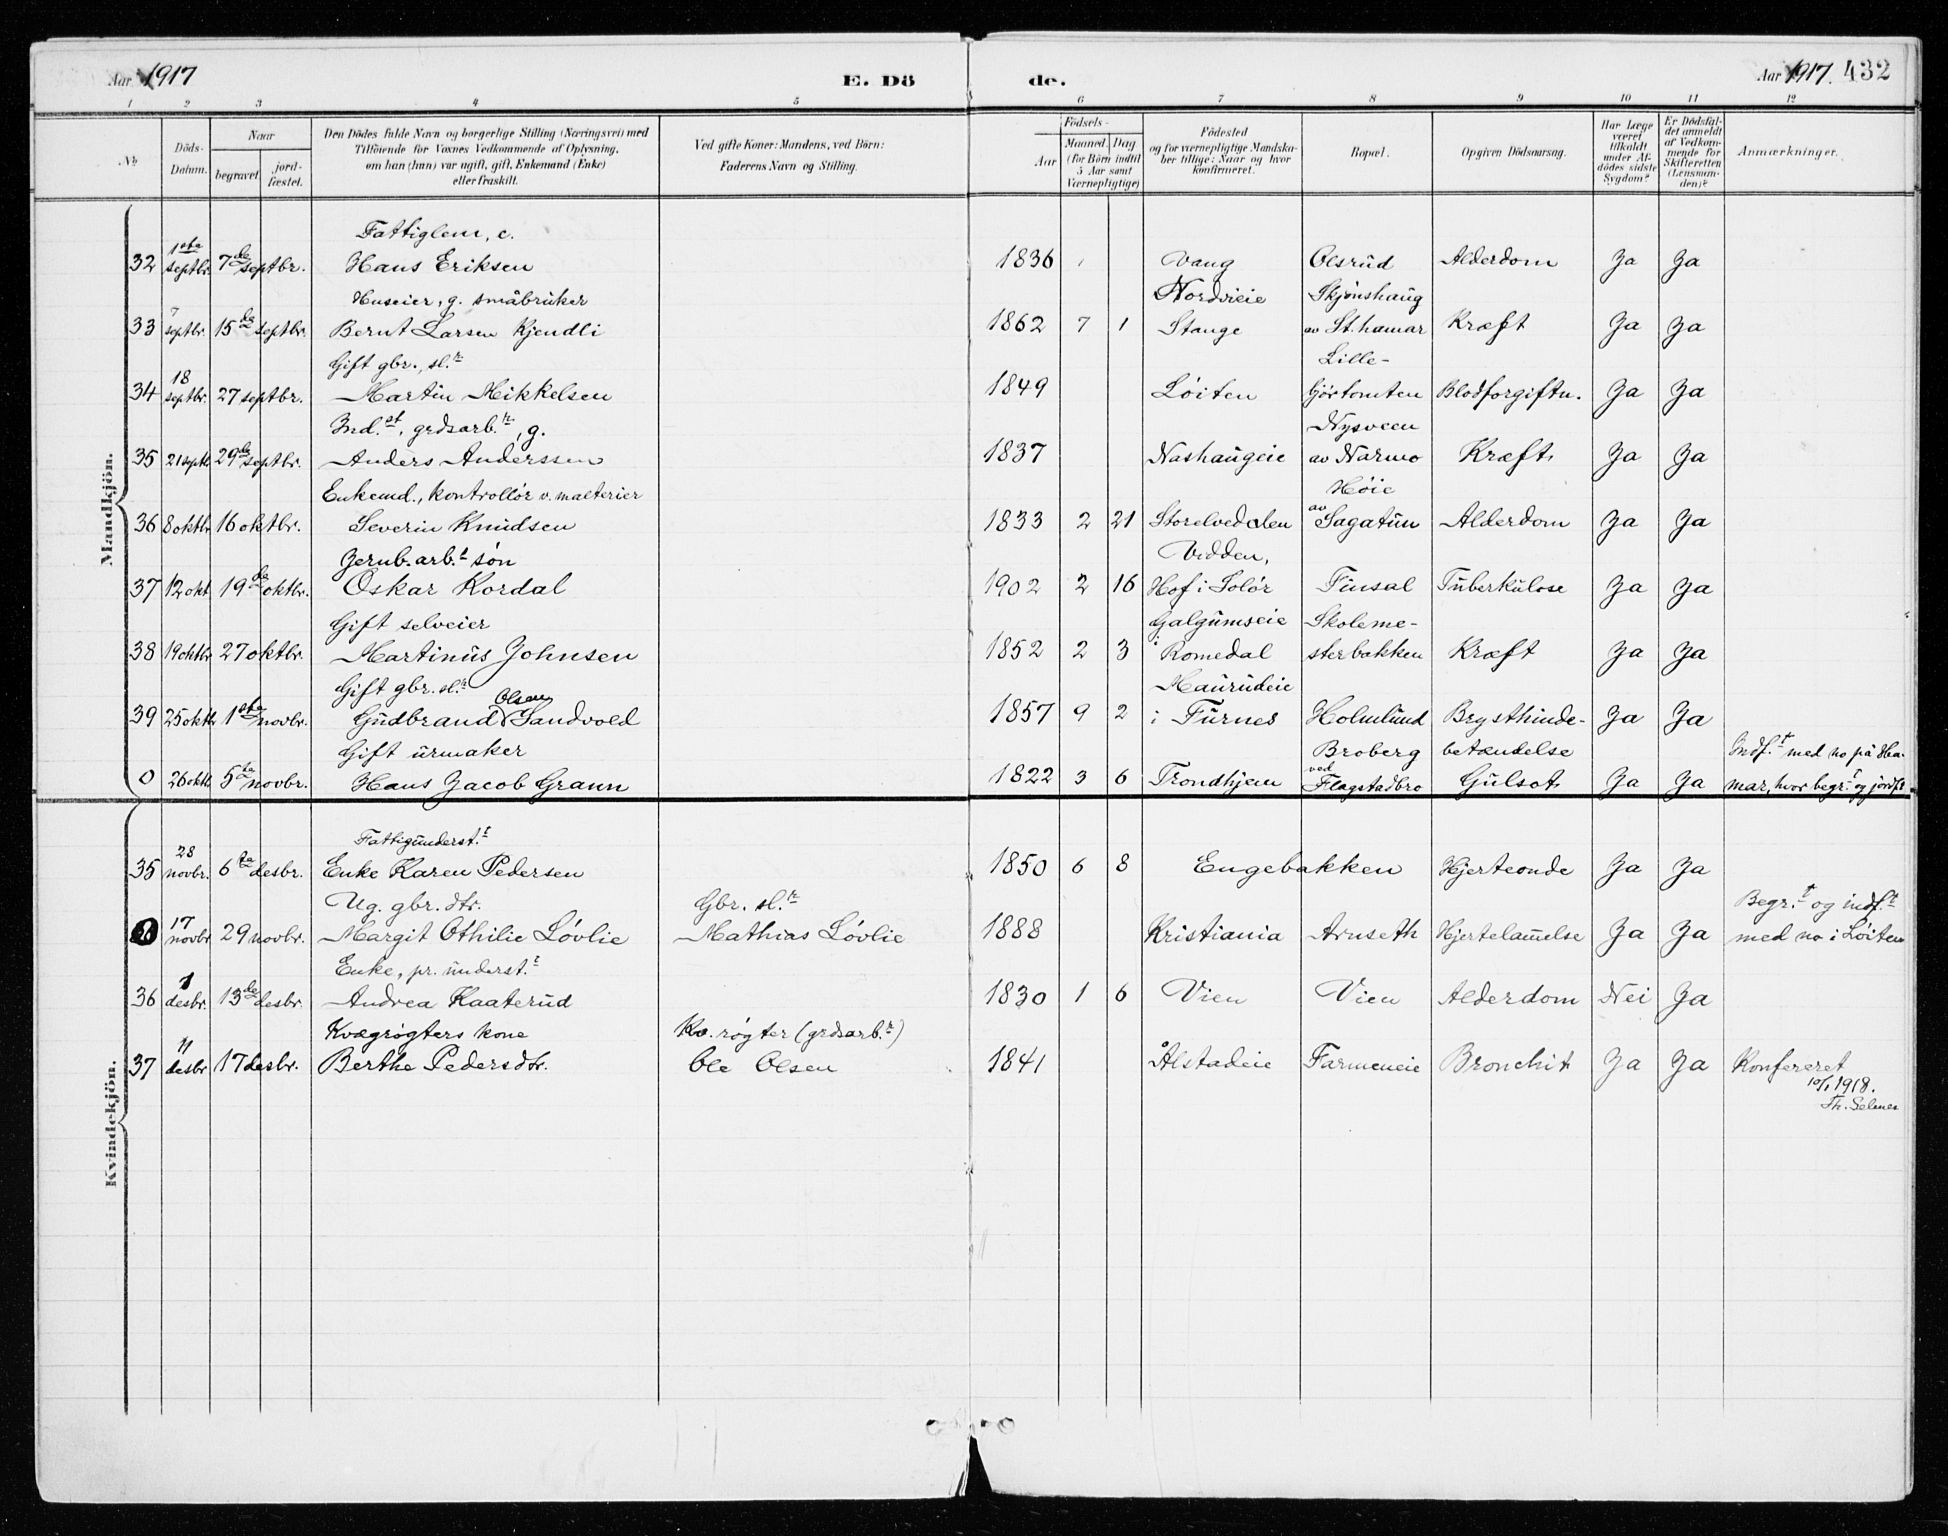 Aar 1917
E. Dö
de.
Aar 1917. 432
1 2 3 4 5 6 7 8 9 10 11 12
No.
Döds-Datum.
Naar
begravet
jord-fæstet.
Den Dödes fulde Navn og borgerlige Stilling (Næringsvei) med
Tilföiende for Voxnes Vedkommende af Oplysning,
om han (hun) var ugift, gift, Enkemand (Enke)
eller fraskilt.
Ved gifte Koner: Mandens, ved Börn:
Faderens Navn og Stilling.
Födsels-
Aar
Maaned. Dag
(for Börn indtil
5 Aar samt
Værnepligtige)
Födested
og for værnepligtige Mandska-
ber tillige: Naar og hvor
konfirmeret.
Bopæl.
Opgiven Dödsaarsag.
Har Læge
været
tilkaldt
under Af-
dödes sidste
Sygdom?
Er Dödsfal-
det anmeldt
af Vedkom-
mende for
Skifteretten
(Lensman-
den)?
Anmærkninger.
Mandkjön.
Fattiglem, e.
32 1ste septbr. 7de septbr. Hans Eriksen 1836 Vang Olsrud Alderdom Ja Ja
Huseier, g. småbruker Nordvieie Skjønshaug
33 7 septbr. 15de septbr. Bernt Larsen Kjendli 1862 7 1 Stange av St.hamar Kræft Ja Ja
Gift gbr., sl.r Lille-
34 18 septbr. 27 septbr. Martin Mikkelsen 1849 Løiten Gjørtomten Blodforgiftn. Ja Ja
Ind.st, grdsarb.r, g. Nysveen
35 21 septb. 29de septbr. Anders Anderssen 1837 Nashaugeie av Narmo Kræft Ja Ja
Enkemd., kontrollør v. malterier Høie
36 8 oktbr. 16 oktbr. Severin Knudsen 1833 2 21 Storelvedalen av Sagatun Alderdom Ja Ja
Jernb.arb.s søn Vidden,
37 12 okt. 19de oktbr. Oskar Kordal 1902 2 16 Hof i Solør Finsal Tuberkulose Ja Ja
Gift selveier Galgumseie Skoleme-
38 19 oktbr. 27 oktbr. Martinus Johnsen 1852 2 3 i Romedal sterbakken Kræft Ja Ja
Gift gbr. sl.r Olsen Maurudeie
39 25 oktb. 1ste novbr. Gudbrand Sandvold 1857 9 2 i Furnes Holmlund Brysthinde- Ja Ja
Gift urmaker Broberg betændelse Indf.t med no på Ha-
0 26 oktb. 5te novbr. Hans Jacob Grann 1822 3 6 Trondhjem ved Flagstadbro Gulsot Ja Ja mar, hvor begr.t og jordf.t
Kvindekjön.
Fattigunderst.t
35 28 novbr. 6te desbr. Enke Karen Pedersen 1850 6 8 Engebakken Hjerteonde Ja Ja
Ug. gbr. dtr. Gbr. sl.r Begr.t og indf.t
17 novbr. 29 novbr. Margit Othilie Løvlie Mathias Løvlie 1888 Kristiania Arnseth Hjertelammelse Ja Ja med no i Løiten
Enke, pr. underst.t
36 1 desbr. 13de desbr. Andrea Kaaterud 1830 1 6 Vien Vien Alderdom Nei Ja
Kvægrøgters kone Kv.røgter (grdsarb.r)
37 11 desbr. 17 desbr. Berthe Pedersdtr. Ole Olsen 1841 Ålstadeie Farmeneie Bronchit Ja Ja Konfereret
10/1 1918.
Th. Selmer